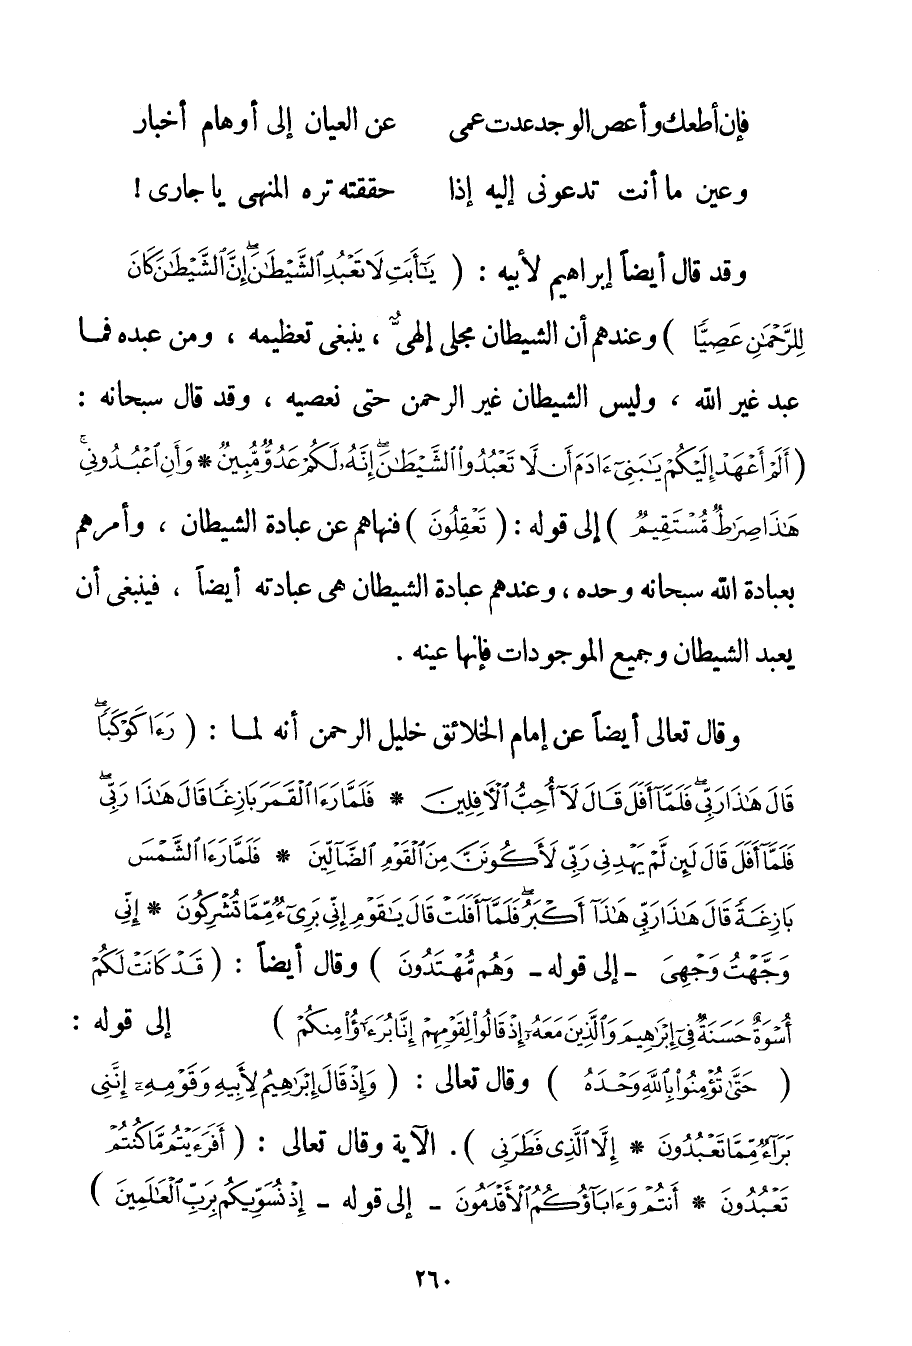 فإن أطعك وأعص الوجد عدت عمى عن العيان إلى أوهام أخبار
وعين ما أنت تدعونى إليه إذا حققته تره المنهى يا جارى !
وقد قال أيضاً إبراهيم لأبيه : ( يَٰٓأَبَتِ لَا تَعْبُدِ ٱلشَّيْطَٰنَ ۖ إِنَّ ٱلشَّيْطَٰنَ كَانَ
لِلرَّحْمَٰنِ عَصِيًّا ) وعندهم أن الشيطان مجلى إلهىٌّ ، ينبغى تعظيمه ، ومن عبده فما
عبد غير الله ، وليس الشيطان غير الرحمن حتى نعصيه ، وقد قال سبحانه :
( أَلَمْ أَعْهَدْ إِلَيْكُمْ يَٰبَنِىٓ ءَادَمَ أَن لَّا تَعْبُدُوا۟ ٱلشَّيْطَٰنَ ۖ إِنَّهُۥ لَكُمْ عَدُوٌّ مُّبِينٌ * وَأَنِ ٱعْبُدُونِى ۚ
هَٰذَا صِرَٰطٌ مُّسْتَقِيمٌ ) إلى قوله : ( تَعْقِلُونَ ) فنهاهم عن عبادة الشيطان ، وأمرهم
بعبادة الله سبحانه وحده ، وعندهم عبادة الشيطان هى عبادته أيضاً ، فينبغى أن
يعبد الشيطان وجميع الموجودات فإنها عينه .
وقال تعالى أيضاً عن إمام الخلائق خليل الرحمن أنه لما : ( رَءَا كَوْكَبًا ۖ
قَالَ هَٰذَا رَبِّى ۖ فَلَمَّآ أَفَلَ قَالَ لَآ أُحِبُّ ٱلْآفِلِينَ * فَلَمَّا رَءَا ٱلْقَمَرَ بَازِغًا قَالَ هَٰذَا رَبِّى ۖ
فَلَمَّآ أَفَلَ قَالَ لَئِن لَّمْ يَهْدِنِى رَبِّى لَأَكُونَنَّ مِنَ ٱلْقَوْمِ ٱلضَّآلِّينَ * فَلَمَّا رَءَا ٱلشَّمْسَ
بَازِغَةً قَالَ هَٰذَا رَبِّى هَٰذَآ أَكْبَرُ ۖ فَلَمَّآ أَفَلَتْ قَالَ يَٰقَوْمِ إِنِّى بَرِىٓءٌ مِّمَّا تُشْرِكُونَ * إِنِّى
وَجَّهْتُ وَجْهِىَ - إلى قوله - وَهُم مُّهْتَدُونَ ) وقال أيضاً : ( قَدْ كَانَتْ لَكُمْ
أُسْوَةٌ حَسَنَةٌ فِىٓ إِبْرَٰهِيمَ وَٱلَّذِينَ مَعَهُۥٓ إِذْ قَالُوا۟ لِقَوْمِهِمْ إِنَّا بُرَءَٰٓؤُا۟ مِنكُمْ ) إلى قوله :
( حَتَّىٰ تُؤْمِنُوا۟ بِٱللَّهِ وَحْدَهُۥ ) وقال تعالى : ( وَإِذْ قَالَ إِبْرَٰهِيمُ لِأَبِيهِ وَقَوْمِهِۦٓ إِنَّنِى
بَرَآءٌ مِّمَّا تَعْبُدُونَ * إِلَّا ٱلَّذِى فَطَرَنِى ). الآية وقال تعالى : ( أَفَرَءَيْتُم مَّا كُنتُمْ
تَعْبُدُونَ * أَنتُمْ وَءَابَآؤُكُمُ ٱلْأَقْدَمُونَ - إلى قوله - إِذْ نُسَوِّيكُم بِرَبِّ ٱلْعَٰلَمِينَ )
٢٦٠